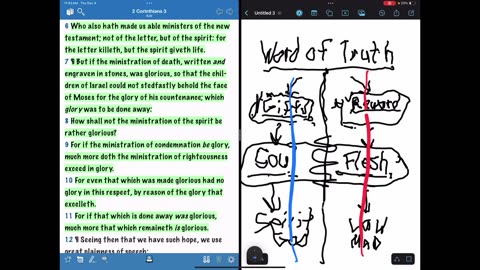 2 Corinthians 3
6 Who also hath made us able ministers of the new
testament; not of the letter, but of the spirit: for
the letter killeth, but the spirit giveth life.
7 ¶ But if the ministration of death, written and
engraven in stones, was glorious, so that the chil-
dren of Israel could not stedfastly behold the face
of Moses for the glory of his countenance; which
glory was to be done away:
8 How shall not the ministration of the spirit be
rather glorious?
9 For if the ministration of condemnation be glory,
much more doth the ministration of righteousness
exceed in glory.
10 For even that which was made glorious had no
glory in this respect, by reason of the glory that
excelleth.
11 For if that which is done away was glorious,
much more that which remaineth is glorious.
12 ¶ Seeing then that we have such hope, we use
great plainness of speech:
Untitled 3
Word of Truth
Reward
Flesh